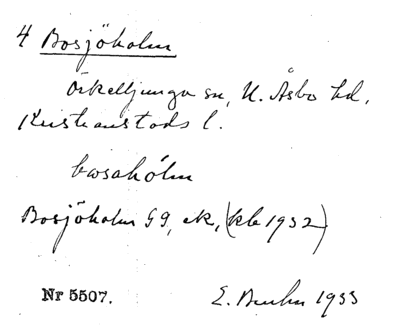 4 Bosjöholm
Örkelljunga sn, N. Åsbo hd,
Kristianstads l.
bosahólm
Bosjöholm gg, ek, (kb 1932)
Nr 5507. E. 1933